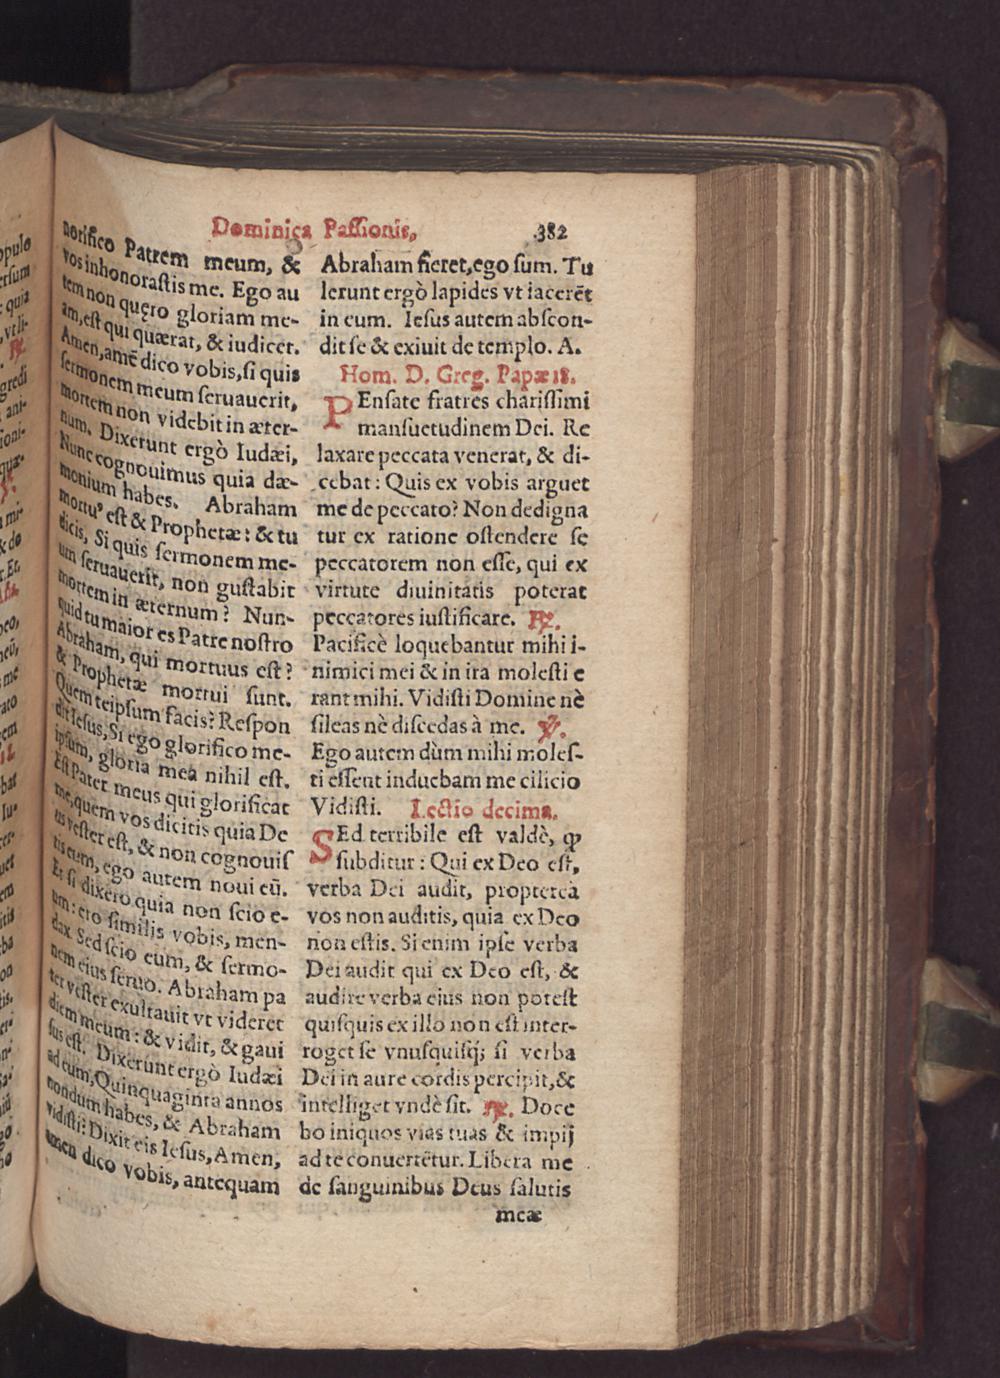 Dominica Passionis,
382
norifico Patrem meum, &
vos inhonorastis me. Ego au
tem non quęro gloriam me-
am, est qui quærat, & iudicet.
Amen, amē dico vobis, si quis
sermonem meum seruauerit,
mortem non videbit in æter-
num. Dixerunt ergò Iudæi,
Nunc cognouimus quia dæ-
monium habes. Abraham
mortuꝰ est & Prophetæ: & tu
dicis, Si quis sermonem me-
um seruauerit, non gustabit
mortem in æternum? Nun-
quid tu maior es Patre nostro
Abraham, qui mortuus est?
& Prophetæ mortui sunt.
Quem teipsum facis? Respon
dit Iesus, Si ego glorifico me-
ipsum, gloria mea nihil est.
Est Pater meus qui glorificat
me, quem vos dicitis quia De
us vester est, & non cognouis
tis eum, ego autem noui eū.
Et si dixero quia non scio e-
um: ero similis vobis, men-
dax Sed scio eum, & sermo-
nem eius seruo. Abraham pa
ter vester exultauit vt videret
diem meum: & vidit, & gaui
sus est. Dixerunt ergò Iudæi
ad eum, Quinquaginta annos
nondum habes, & Abraham
vidisti? Dixit eis Iesus, Amen,
amen dico vobis, antequam
Abraham fieret, ego sum. Tu
lerunt ergò lapides vt iacerēt
in eum. Iesus autem abscon-
dit se & exiuit de templo. A.
Hom. D. Greg. Papæ 18.
PEnsate fratres charissimi
mansuetudinem Dei. Re
laxare peccata venerat, & di-
cebat: Quis ex vobis arguet
me de peccato? Non dedigna
tur ex ratione ostendere se
peccatorem non esse, qui ex
virtute diuinitatis poterat
peccatores iustificare. ℞.
Pacificè loquebantur mihi i-
nimici mei & in ira molesti e
rant mihi. Vidisti Domine nè
sileas nè discedas à me. ℣.
Ego autem dùm mihi moles-
ti essent induebam me cilicio
Vidisti. Lectio decima.
SEd terribile est valdè, ꝙ
subditur: Qui ex Deo est,
verba Dei audit, proptereà
vos non auditis, quia ex Deo
non estis. Si enim ipse verba
Dei audit qui ex Deo est, &
audire verba eius non potest
quisquis ex illo non est inter-
roget se vnusquisq; si verba
Dei in aure cordis percipit, &
intelliget vndè sit. ℞. Doce
bo iniquos vias tuas & impij
ad te conuertētur. Libera me
de sanguinibus Deus salutis
meæ